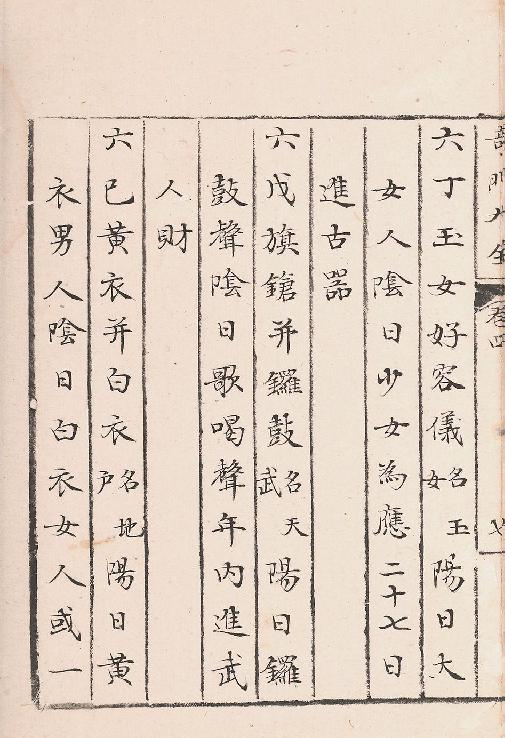 卷四
六丁玉女好容儀名玉女陽日大
女人陰日少女為應二十七日
進古器
六戊旗鎗并鑼鼓名天武陽日鑼
鼓聲陰日歌喝聲年內進武
人財
六己黃衣并白衣名地户陽日黃
衣男人陰日白衣女人或一